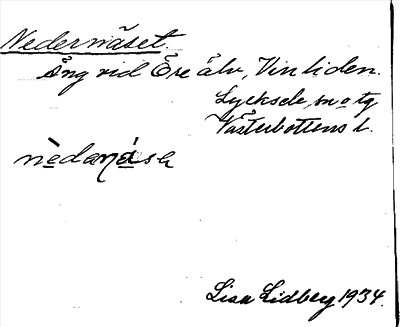 Nedernäset.
Äng vid Öre älv, Vinliden.
Lycksele, sn o tg
Västerbottens l.
Lisa Lidberg 1934.